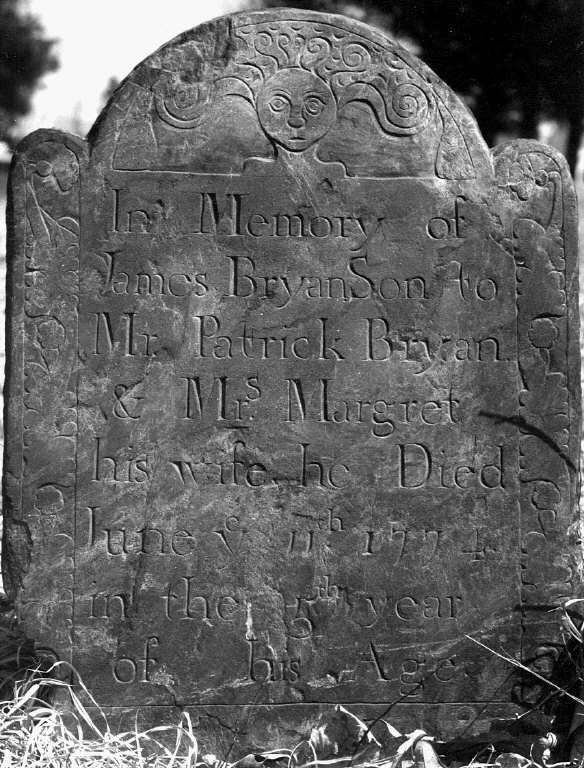 In Memory of
James Bryan Son to
Mr. Patrick Bryan.
& Mrs. Margret
his wife he Died
June ye 11th 1774.
in the 5th year
of his Age